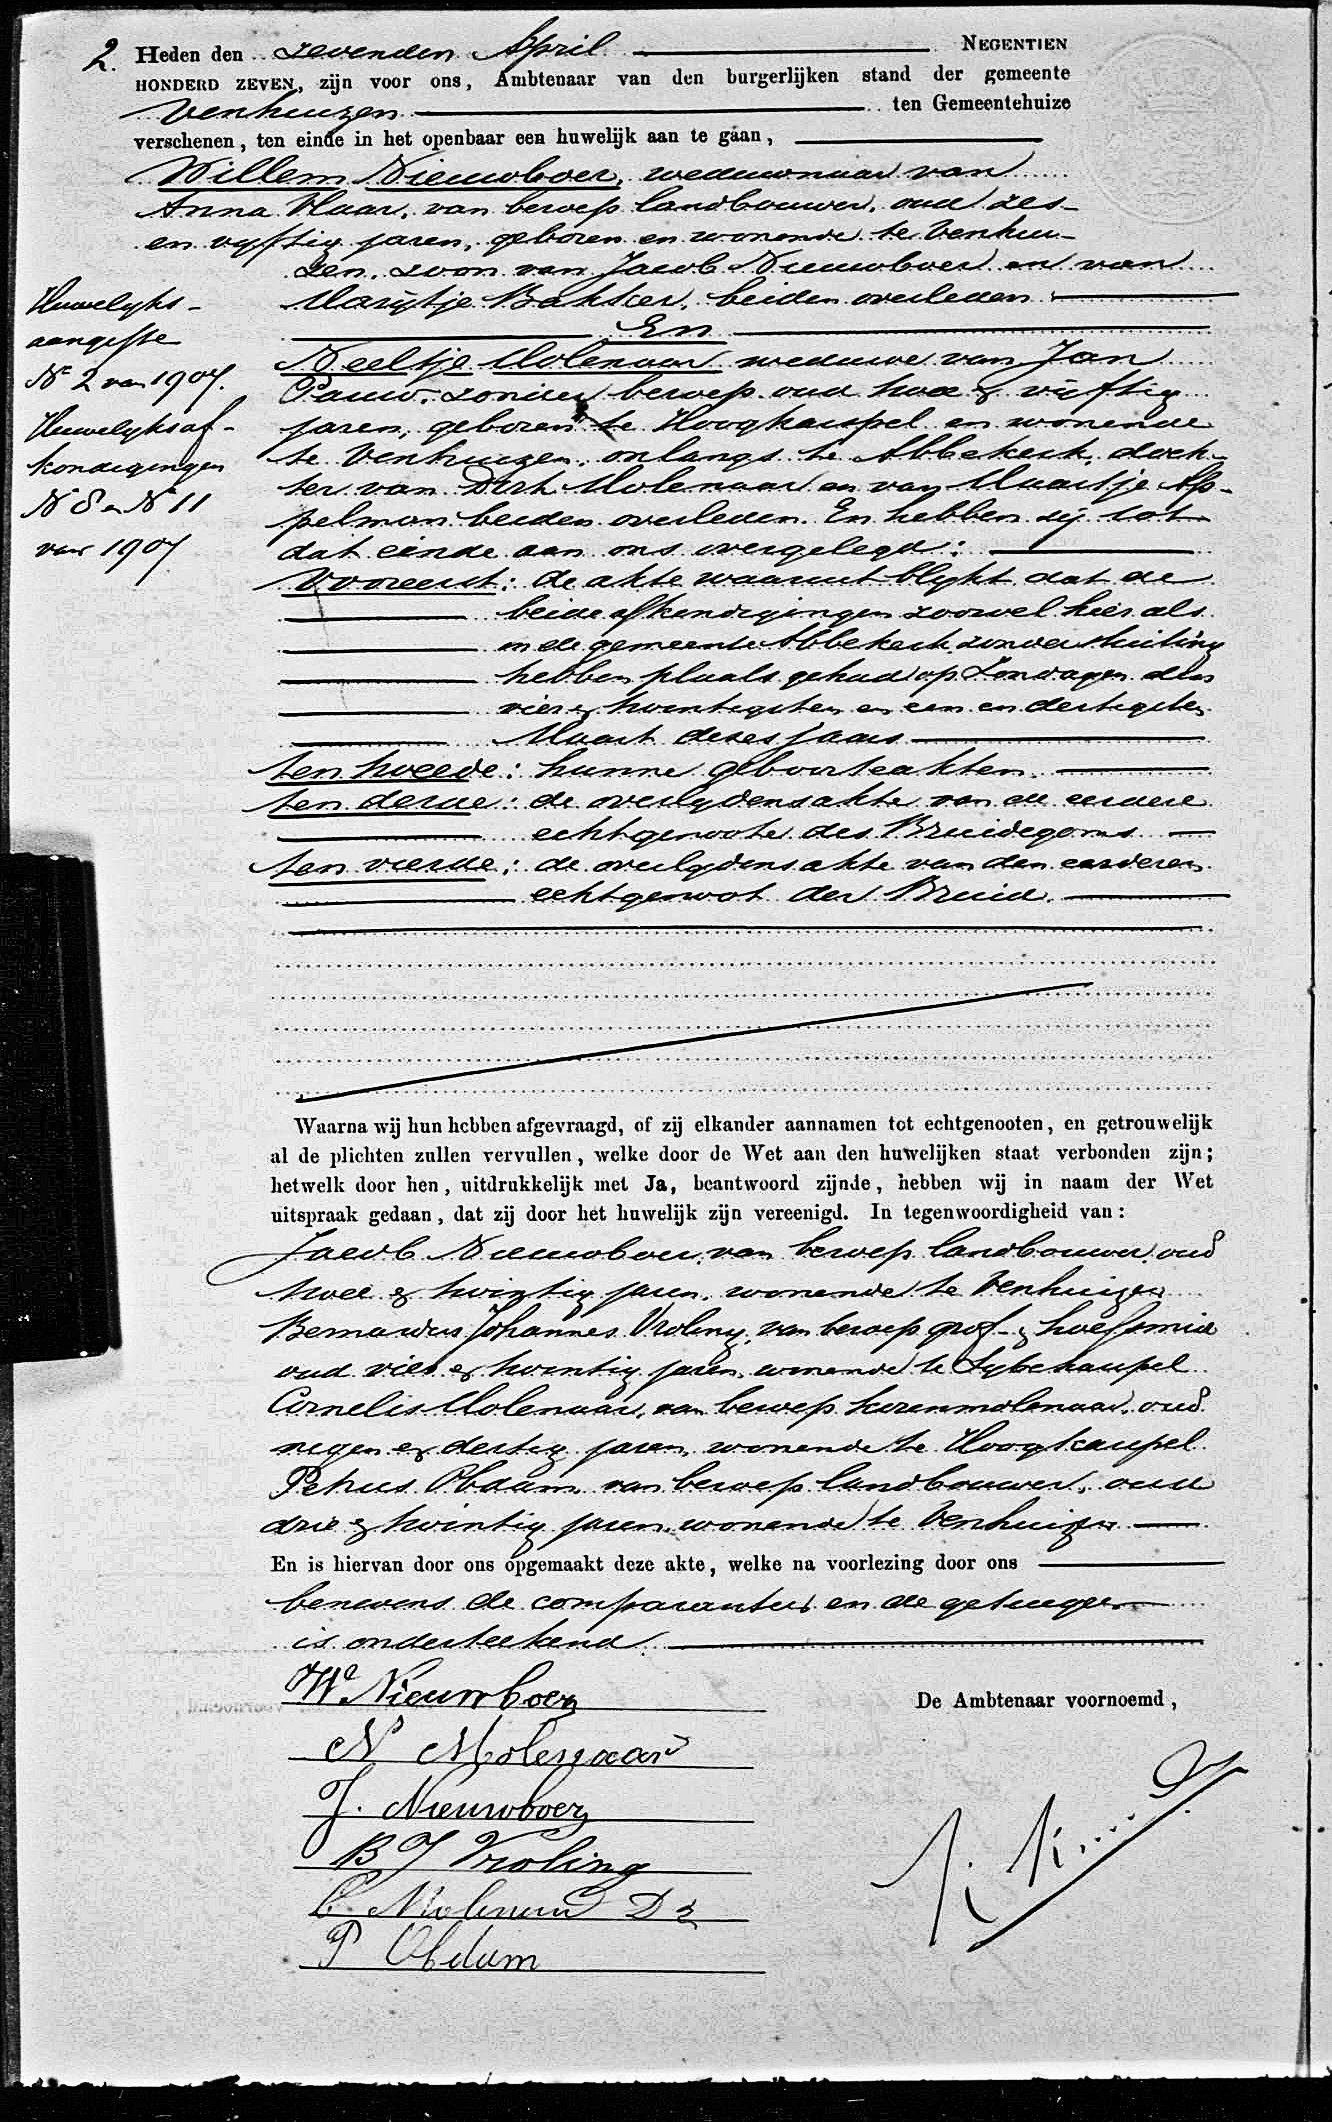 2. Heden den zevenden April NEGENTIEN
HONDERD ZEVEN, zijn voor ons, Ambtenaar van den burgerlijken stand der gemeente
Venhuizen ten Gemeentehuize
verschenen, ten einde in het openbaar een huwelijk aan te gaan,
Willem Nieuwboer, weduwnaar van
Anna Vlaar, van beroep landbouwer, oud zes-
en vyftig jaren, geboren en wonende te Venhui-
zen, zoon van Jacob Nieuwboer en van
Marijtje Bakker, beiden overleden
En
Neeltje Molenaar weduwe van Jan
Pauw, zonder beroep oud twee & vijftig
jaren, geboren te Hoogkarspel en wonende
te Venhuizen, onlangs te Abbekerk, doch-
ter van Dirk Molenaar en van Maartje Ap-
pelman beiden overleden. En hebben zij tot
dat einde aan ons overgelegd:
Vooreerst: de akte waaruit blykt dat de
beide afkondigingen zoowel hier als
in de gemeente Abbekerk zonder stuiting
hebben plaats gehad op Zondagen den
vier & twintigsten en een en dertigsten
Maart dezes jaars
ten tweede: hunne geboorteakten.
ten derde: de overlydensakte van de eerdere
echtgenoote des Bruidegoms
ten vierde: de overlydensakte van den eerderen
echtgenoot der Bruid.
Huwelyks-
aangifte
No 2 van 1907.
Huwelyksaf-
kondigingen
No 8 en No 11
van 1907
Waarna wij hun hebben afgevraagd, of zij elkander aannamen tot echtgenooten, en getrouwelijk
al de plichten zullen vervullen, welke door de Wet aan den huwelijken staat verbonden zijn;
hetwelk door hen, uitdrukkelijk met Ja, beantwoord zijnde, hebben wij in naam der Wet
uitspraak gedaan, dat zij door het huwelijk zijn vereenigd. In tegenwoordigheid van:
Jacob Nieuwboer, van beroep landbouwer, oud
twee & twintig jaren, wonende te Venhuizen
Bernardus Johannes Vroling, van beroep grof- & hoefsmid
oud vier & twintig jaren, wonende te Lybekarspel
Cornelis Molenaar, van beroep korenmolenaar, oud
negen & dertig jaren, wonende te Hoogkarspel
Petrus Obdam, van beroep landbouwer, oud
drie & twintig jaren, wonende te Venhuizen
En is hiervan door ons opgemaakt deze akte, welke na voorlezing door ons
benevens de comparanten en de getuigen
is onderteekend.
Wm Nieuwboer
N Molenaar
J. Nieuwboer
B J Vroling
C Molenaar Dz
P Obdam
De Ambtenaar voornoemd,